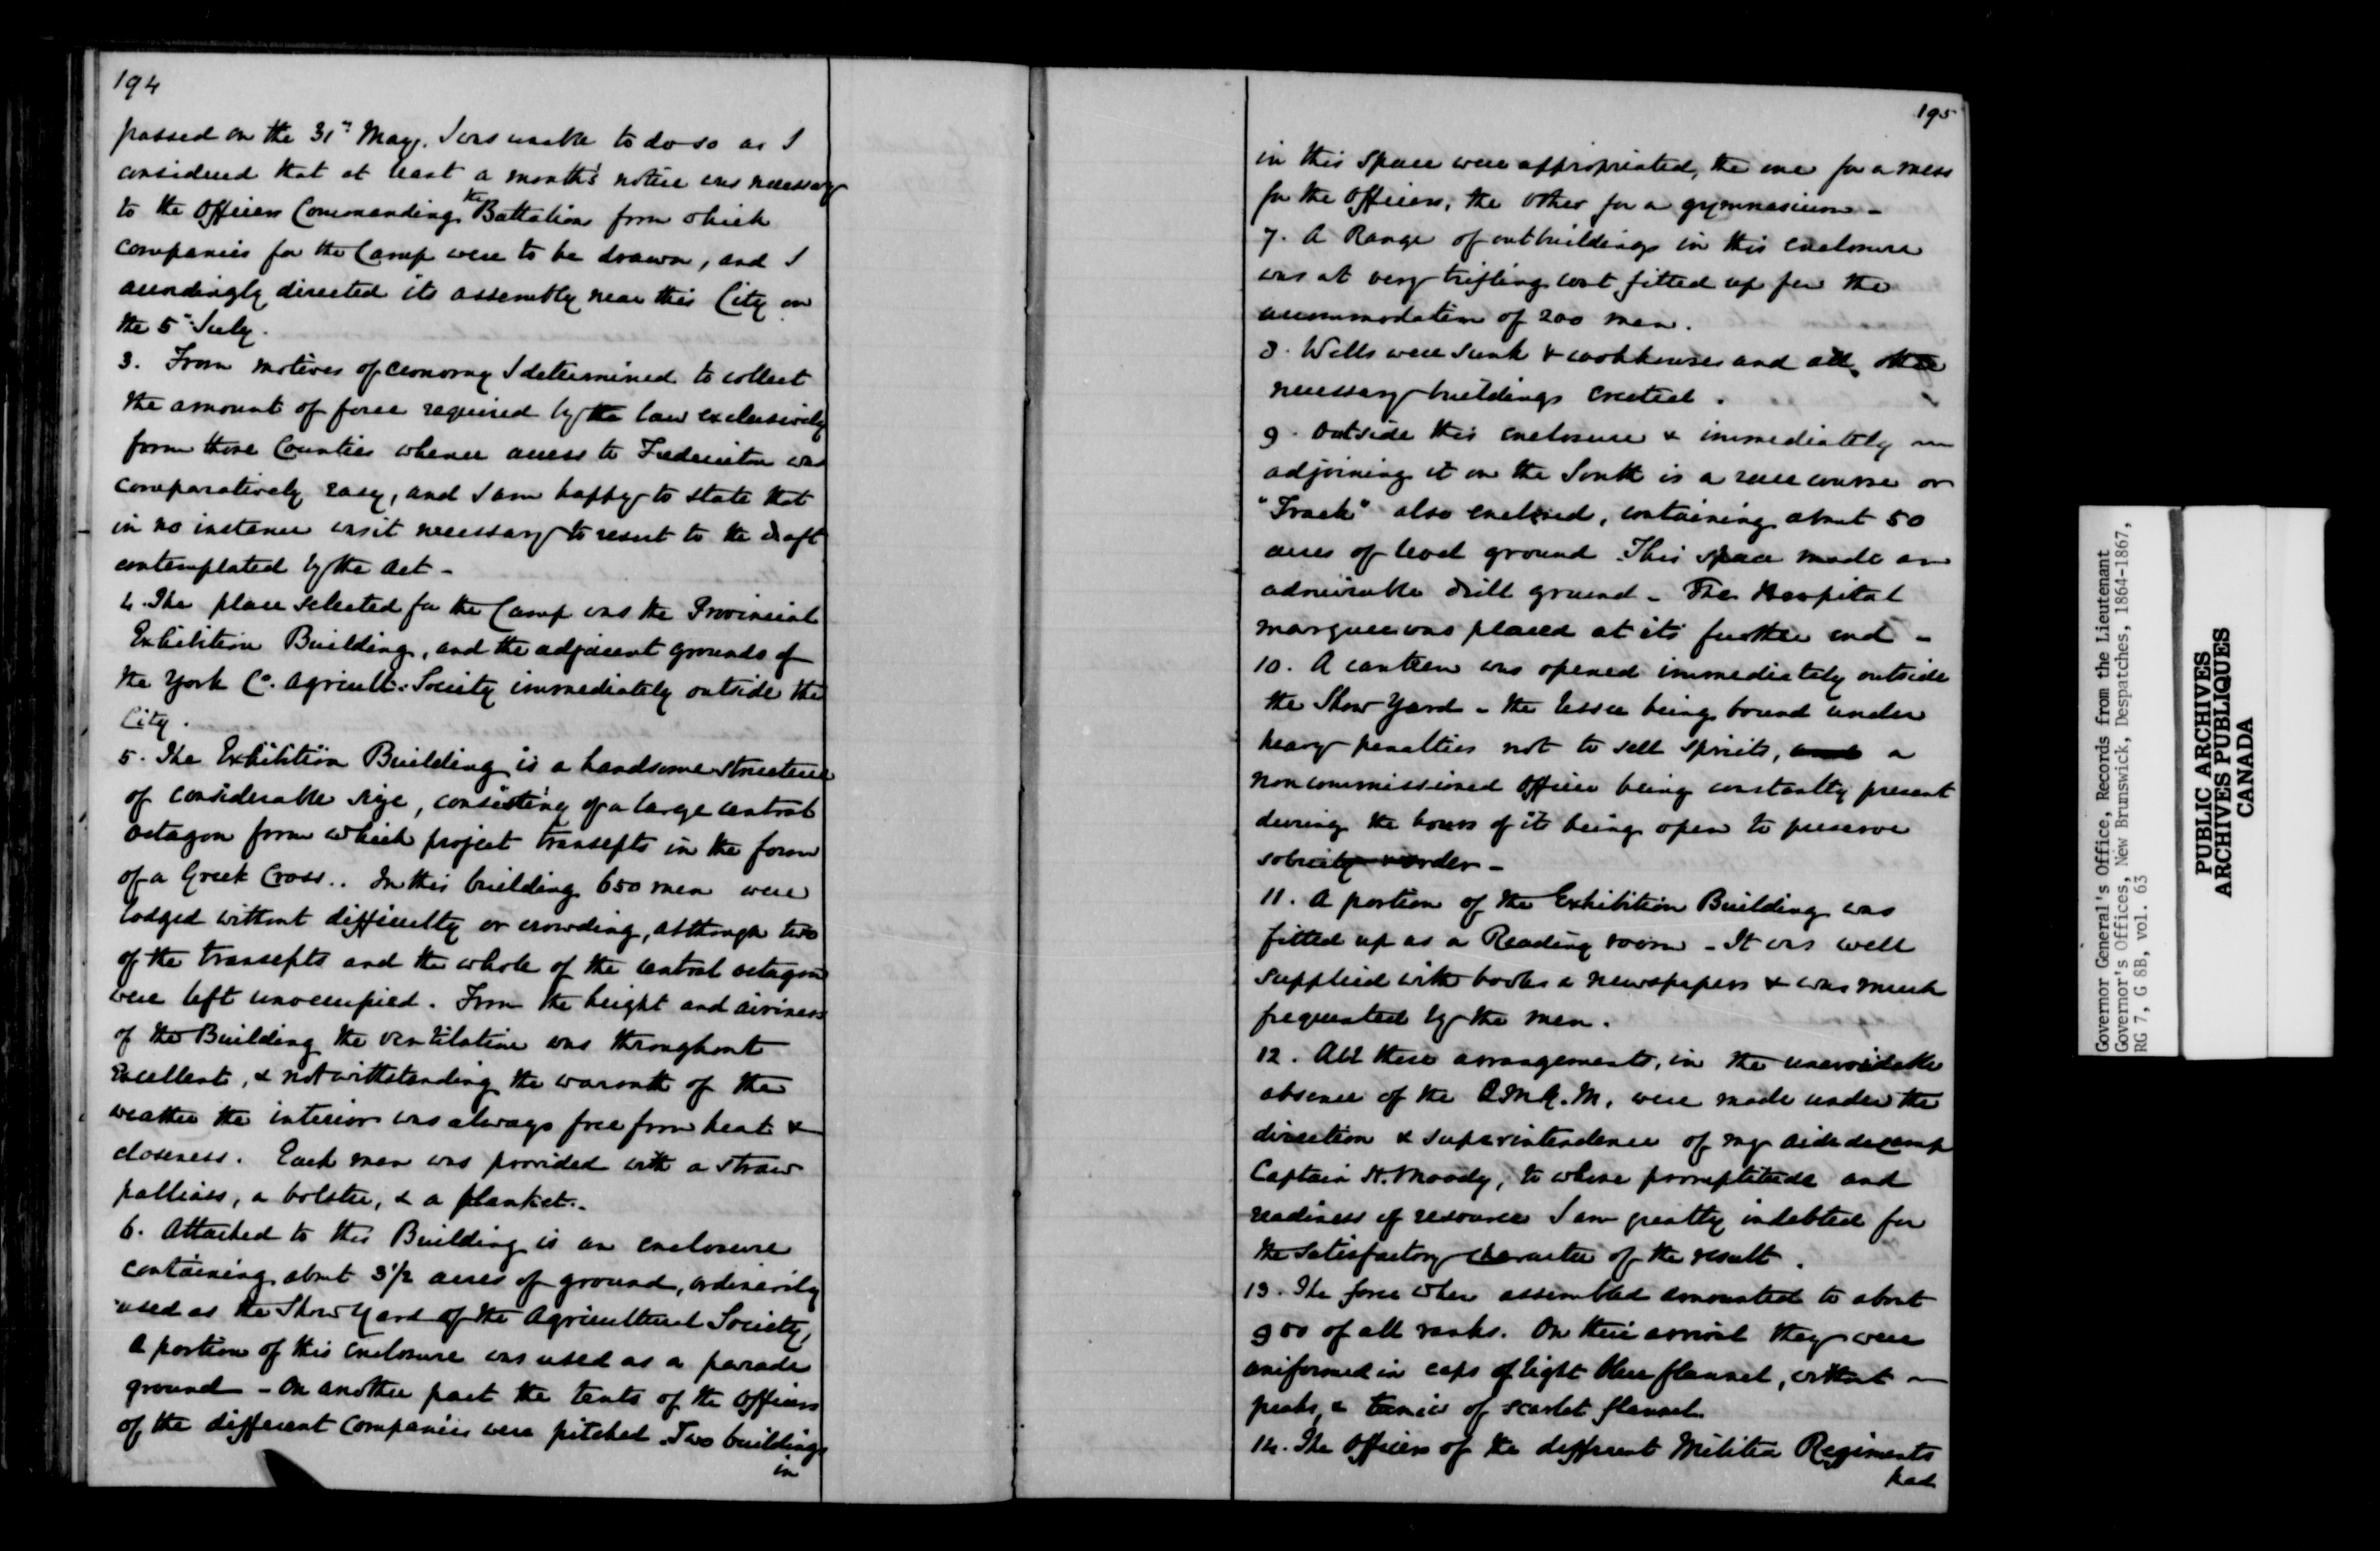 194
passed on the 31st May. I was unable to do so as I
considered that at least a month's notice was necessary
to the Officers Commanding the Battalions from which
companies for the Camp were to be drawn, and I
accordingly directed its assembly near this City on
the 5th July.
3. From motives of economy I determined to collect
the amount of force required by the law exclusively
from those Counties whence access to Fredericton was
comparatively easy, and I am happy to state that
in no instance was it necessary to resort to the draft
contemplated by the Act -
4. The place selected for the Camp was the Provincial
Exhibition Building, and the adjacent grounds of
the York Co. Agricult: Society immediately outside the
City.
5. The Exhibition Building is a handsome structure
of considerable size, consisting of a large central
octagon from which project transepts in the form
of a Greek Cross.. In this building 650 men were
lodged without difficulty or crowding, although two
of the transepts and the whole of the central octagon
were left unoccupied. From the height and airiness
of the Building the ventilation was throughout
Excellent, & notwithstanding the warmth of the
weather the interior was always free from heat &
closeness. Each man was provided with a straw
palliass, a bolster, & a blanket.
6. Attached to this Building is an enclosure
containing about 3 1/2 acres of ground, ordinarily
used as the Show Yard of the Agricultural Society,
A portion of this enclosure was used as a parade
ground - On another part the tents of the Officers
of the different Companies were pitched. Two buildings
in
195
in this space were appropriated, the one for a mess
for the Officers, the other for a gymnasium -
7. A Range of outbuildings in this enclosure
was at very trifling cost fitted up for the
accommodation of 200 men.
8. Wells were sunk & cookhouses and all other
necessary buildings erected.
9. Outside this enclosure & immediately
adjoining it on the South is a race course or
"Track" also enclosed, containing about 50
acres of level ground. This space made an
admirable drill ground - The Hospital
marquee was placed at its further end -
10. A canteen was opened immediately outside
the Show Yard - the lessee being bound under
heavy penalties not to sell spirits, and a
noncommissioned officer being constantly present
during the hours of its being open to preserve
sobriety & order -
11. A portion of the Exhibition Building was
fitted up as a Reading room - It was well
supplied with books & newspapers & was much
frequented by the men.
12. All these arrangements, in the unavoidable
absence of the Q.M.G.M. were made under the
direction & superintendence of my aide de camp
Captain H. Moody, to whose promptitude and
readiness of resource I am greatly indebted for
the satisfactory character of the result.
13. The force when assembled amounted to about
900 of all ranks. On their arrival they were
uniformed in caps of light blue flannel, without
peaks, & tunics of scarlet flannel.
14. The Officers of the different Militia Regiments
had
Governor General's Office, Records from the Lieutenant
Governor's Offices, New Brunswick, Despatches, 1864-1867,
RG 7, G 8B, vol. 63
PUBLIC ARCHIVES
ARCHIVES PUBLIQUES
CANADA